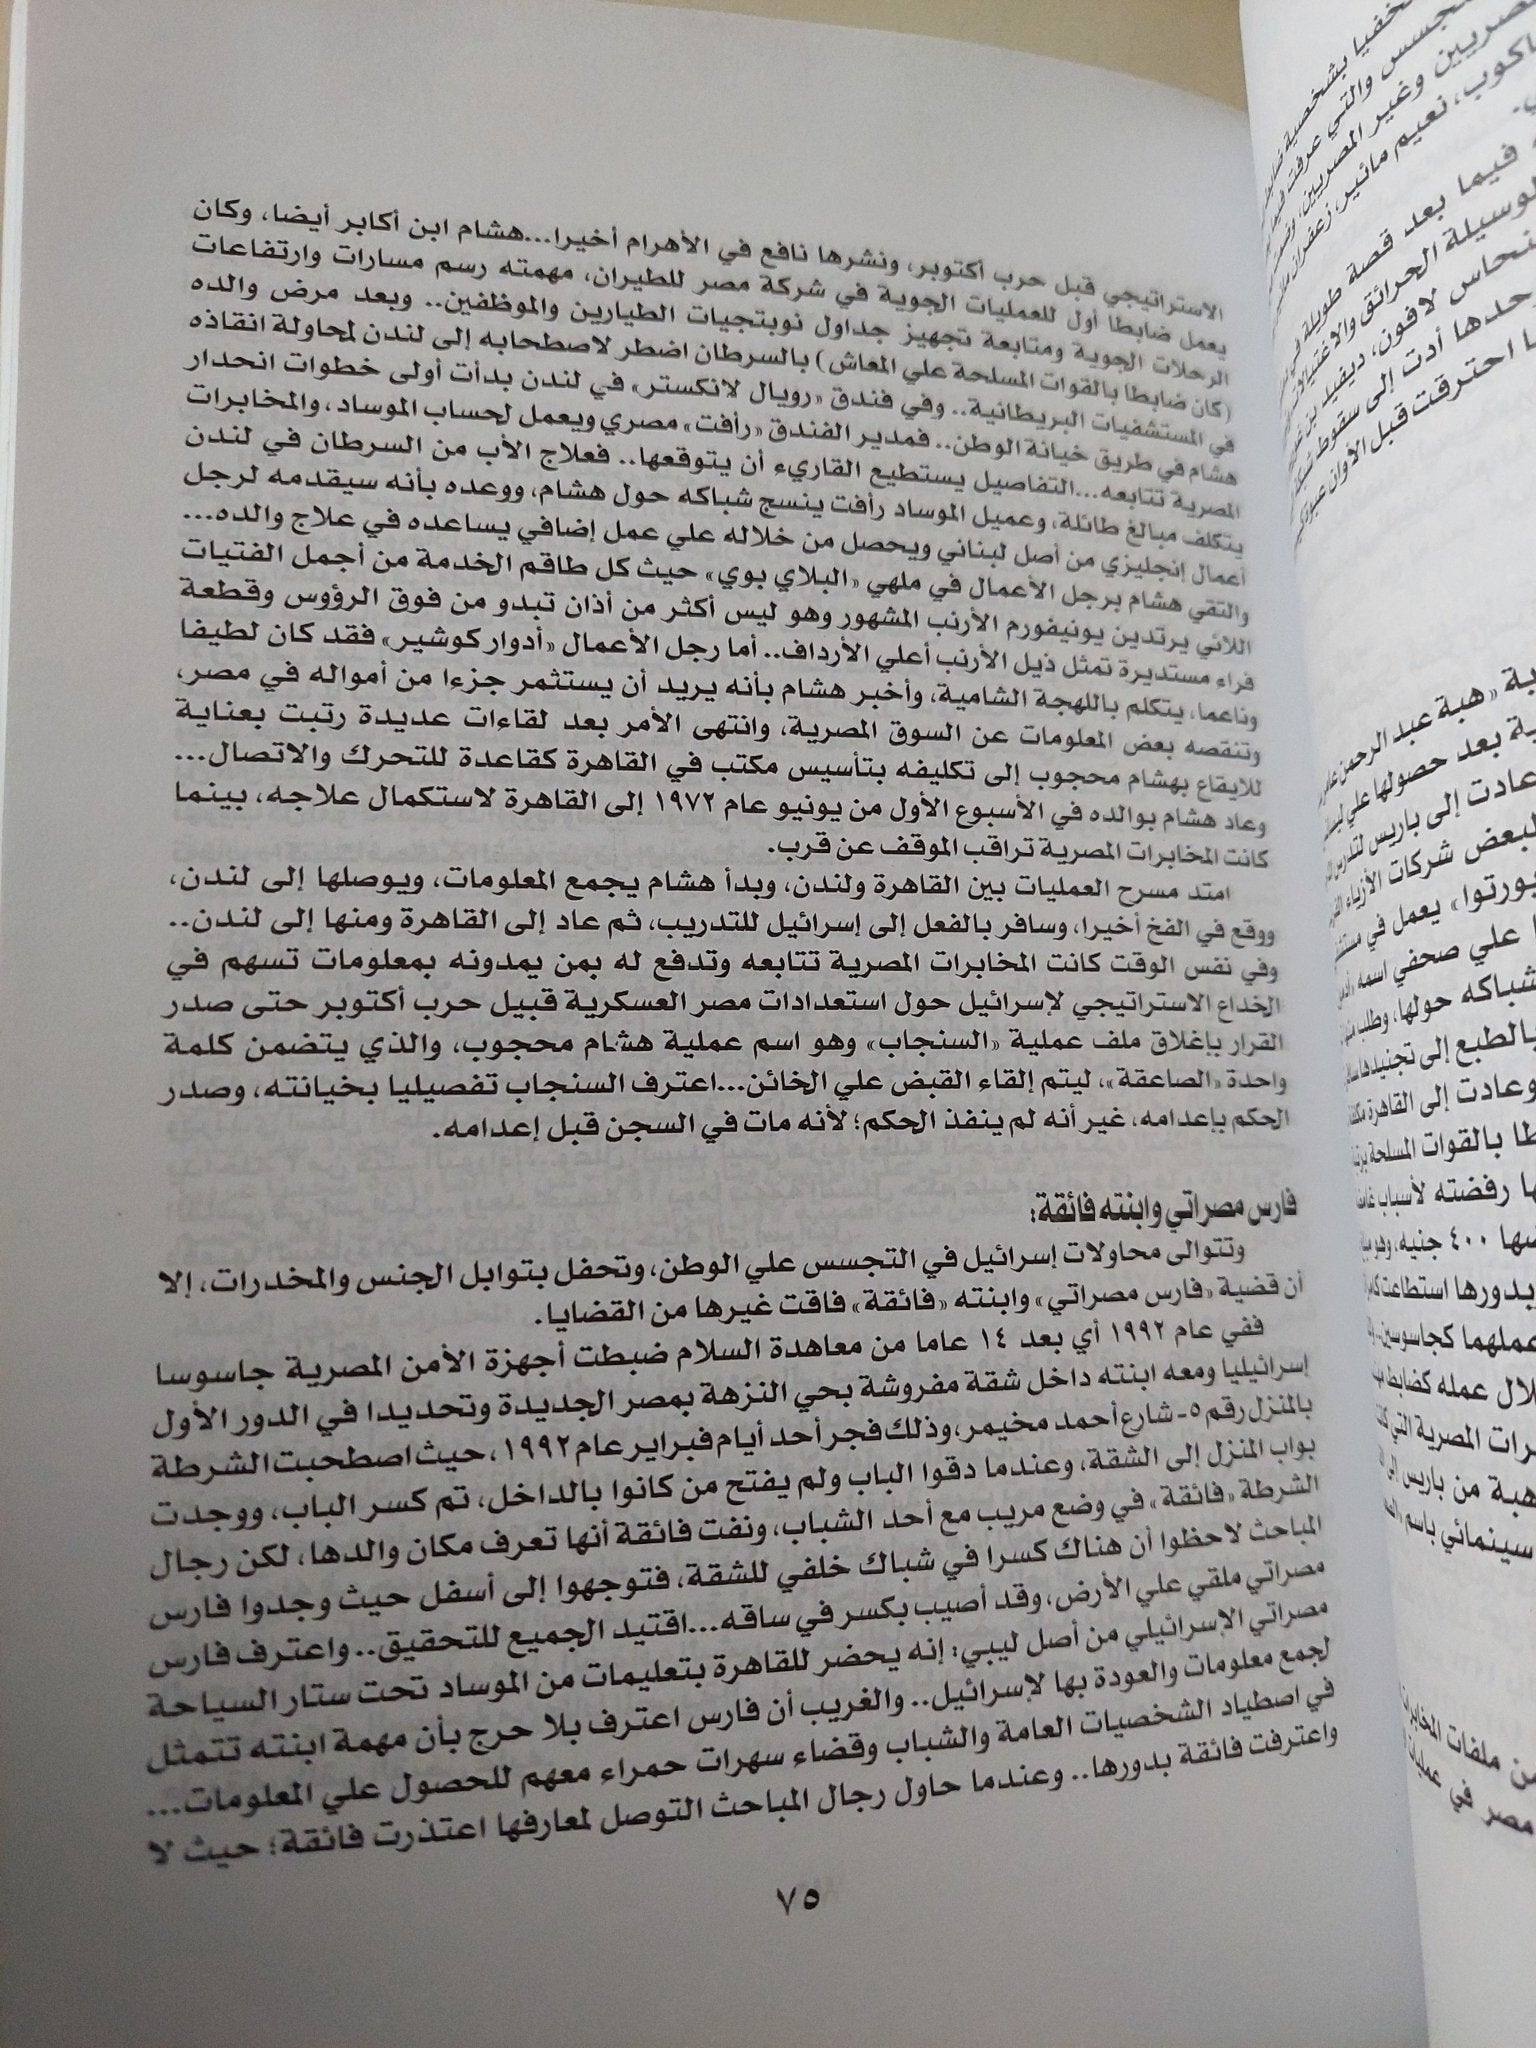 الاستراتيجي قبل حرب أكتوبر، ونشرها نافع في الأهرام أخيرا...هشام ابن أكابر أيضا، وكان
يعمل ضابطا أول للعمليات الجوية في شركة مصر للطيران، مهمته رسم مسارات وارتفاعات
الرحلات الجوية ومتابعة تجهيز جداول نوبتجيات الطيارين والموظفين.. وبعد مرض والده
(كان ضابطا بالقوات المسلحة علي المعاش) بالسرطان اضطر لاصطحابه إلى لندن لمحاولة انقاذه
في المستشفيات البريطانية.. وفي فندق «رويال لانكستر» في لندن بدأت أولى خطوات انحدار
هشام في طريق خيانة الوطن.. فمدير الفندق «رأفت» مصري ويعمل لحساب الموساد، والمخابرات
المصرية تتابعه...التفاصيل يستطيع القاريء أن يتوقعها.. فعلاج الأب من السرطان في لندن
يتكلف مبالغ طائلة، وعميل الموساد رأفت ينسج شباكه حول هشام، ووعده بأنه سيقدمه لرجل
أعمال إنجليزي من أصل لبناني ويحصل من خلاله علي عمل إضافي يساعده في علاج والده...
والتقي هشام برجل الأعمال في ملهي «البلاي بوي» حيث كل طاقم الخدمة من أجمل الفتيات
اللائي يرتدين يونيفورم الأرنب المشهور وهو ليس أكثر من أذان تبدو من فوق الرؤوس وقطعة
فراء مستديرة تمثل ذيل الأرنب أعلي الأرداف.. أما رجل الأعمال «أدوار كوشير» فقد كان لطيفا
وناعما، يتكلم باللهجة الشامية، وأخبر هشام بأنه يريد أن يستثمر جزءا من أمواله في مصر،
وتنقصه بعض المعلومات عن السوق المصرية، وانتهى الأمر بعد لقاءات عديدة رتبت بعناية
للايقاع بهشام محجوب إلى تكليفه بتأسيس مكتب في القاهرة كقاعدة للتحرك والاتصال...
وعاد هشام بوالده في الأسبوع الأول من يونيو عام ١٩٧٢ إلى القاهرة لاستكمال علاجه، بينما
كانت المخابرات المصرية تراقب الموقف عن قرب.
امتد مسرح العمليات بين القاهرة ولندن، وبدأ هشام يجمع المعلومات، ويوصلها إلى لندن،
ووقع في الفخ أخيرا، وسافر بالفعل إلى إسرائيل للتدريب، ثم عاد إلى القاهرة ومنها إلى لندن..
وفي نفس الوقت كانت المخابرات المصرية تتابعه وتدفع له بمن يمدونه بمعلومات تسهم في
الخداع الاستراتيجي لإسرائيل حول استعدادات مصر العسكرية قبيل حرب أكتوبر حتى صدر
القرار بإغلاق ملف عملية «السنجاب» وهو اسم عملية هشام محجوب، والذي يتضمن كلمة
واحدة «الصاعقة»، ليتم إلقاء القبض علي الخائن...اعترف السنجاب تفصيليا بخيانته، وصدر
الحكم بإعدامه، غير أنه لم ينفذ الحكم؛ لأنه مات في السجن قبل إعدامه.
فارس مصراتي وابنته فائقة:
وتتوالى محاولات إسرائيل في التجسس علي الوطن، وتحفل بتوابل الجنس والمخدرات، إلا
أن قضية «فارس مصراتي» وابنته «فائقة» فاقت غيرها من القضايا.
ففي عام ١٩٩٢ أي بعد ١٤ عاما من معاهدة السلام ضبطت أجهزة الأمن المصرية جاسوسا
إسرائيليا ومعه ابنته داخل شقة مفروشة بحي النزهة بمصر الجديدة وتحديدا في الدور الأول
بالمنزل رقم ٥- شارع أحمد مخيمر، وذلك فجر أحد أيام فبراير عام ١٩٩٢، حيث اصطحبت الشرطة
بواب المنزل إلى الشقة، وعندما دقوا الباب ولم يفتح من كانوا بالداخل، تم كسر الباب، ووجدت
الشرطة «فائقة» في وضع مريب مع أحد الشباب، ونفت فائقة أنها تعرف مكان والدها، لكن رجال
المباحث لاحظوا أن هناك كسرا في شباك خلفي للشقة، فتوجهوا إلى أسفل حيث وجدوا فارس
مصراتي ملقي علي الأرض، وقد أصيب بكسر في ساقه...اقتيد الجميع للتحقيق.. واعترف فارس
مصراتي الإسرائيلي من أصل ليبي: إنه يحضر للقاهرة بتعليمات من الموساد تحت ستار السياحة
لجمع معلومات والعودة بها لإسرائيل.. والغريب أن فارس اعترف بلا حرج بأن مهمة ابنته تتمثل
في اصطياد الشخصيات العامة والشباب وقضاء سهرات حمراء معهم للحصول علي المعلومات...
واعترفت فائقة بدورها.. وعندما حاول رجال المباحث التوصل لمعارفها اعتذرت فائقة؛ حيث لا
٧٥
التجسس والتي عرفت
المصريين وغير المصريين،
نعيم مائير، زعفران
فيما بعد قصة طويلة
لافون، ديفيد بن
أدت إلى سقوط
احترقت قبل الأوان
«هبة عبد الرحمن
بعد حصولها علي
عادت إلى باريس
لبعض شركات الأزياء
يعمل في
علي صحفي اسمه
شباكه حولها، وطلب
بالطبع إلى تجنيدها
وعادت إلى القاهرة
بالقوات المسلحة
رفضته لأسباب
٤٠٠ جنيه، وهو
بدورها استطاعت
عملهما كجاسوسين
عمله كضابط
المصرية التي
هبة من باريس إلى
سينمائي باسم
من ملفات المخابرات
مصر في عمليات